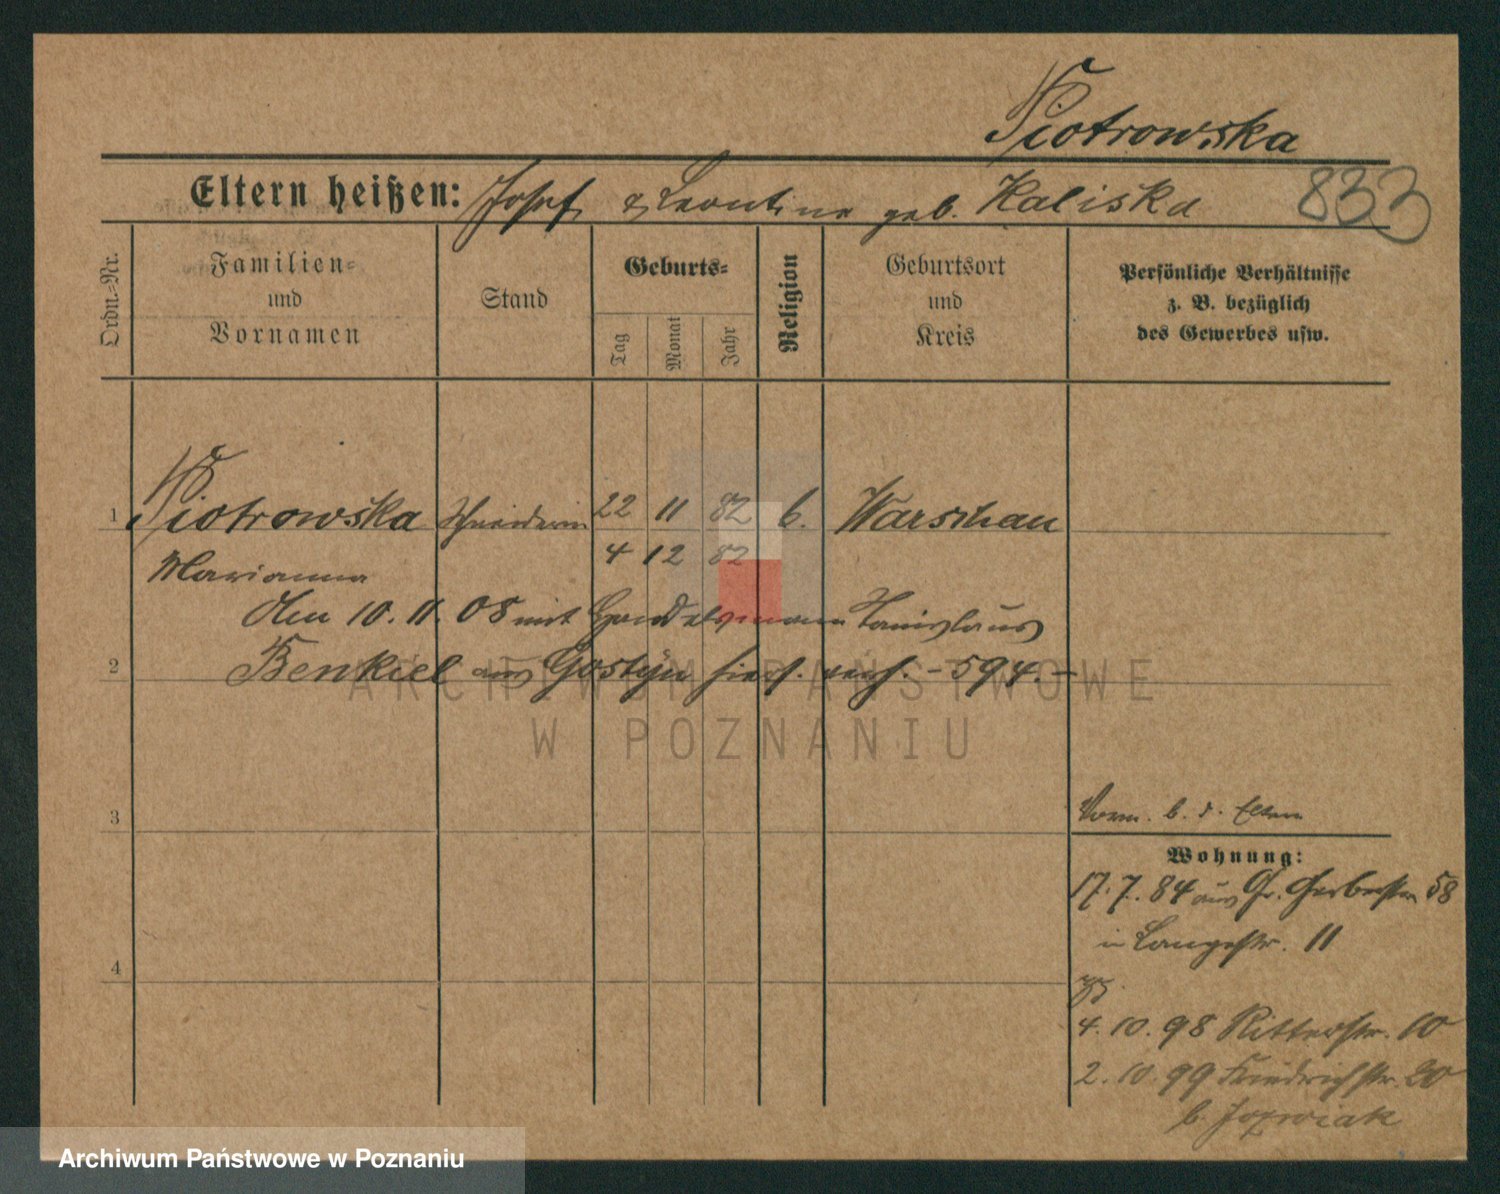 Piotrowska
Eltern heißen: Josef & Leontine geb. Kaliska 833
Ordn.-Nr.
Familien- und Vornamen
Stand
Geburts-
Tag
Monat
Jahr
Religion
Geburtsort und Kreis
Persönliche Verhältnisse
z. B. bezüglich
des Gewerbes usw.
1 Piotrowska Schneiderin 22 11 82 k. Warschau
Marianna 4 12 82
Am 10.11.08 mit Handelsmann Stanislaus
2 Benkiel aus Gostyn hier verh. - 594. -
ARCHIWUM PAŃSTWOWE
W POZNANIU
3
Vorm. b. d. Eltern
Wohnung:
17.7.84 aus Gr. Gerberstr 58
in Langestr. 11
4
4.10.98 Ritterstr. 10
2.10.99 Friedrichstr. 20
b. Jozwiak
Archiwum Państwowe w Poznaniu